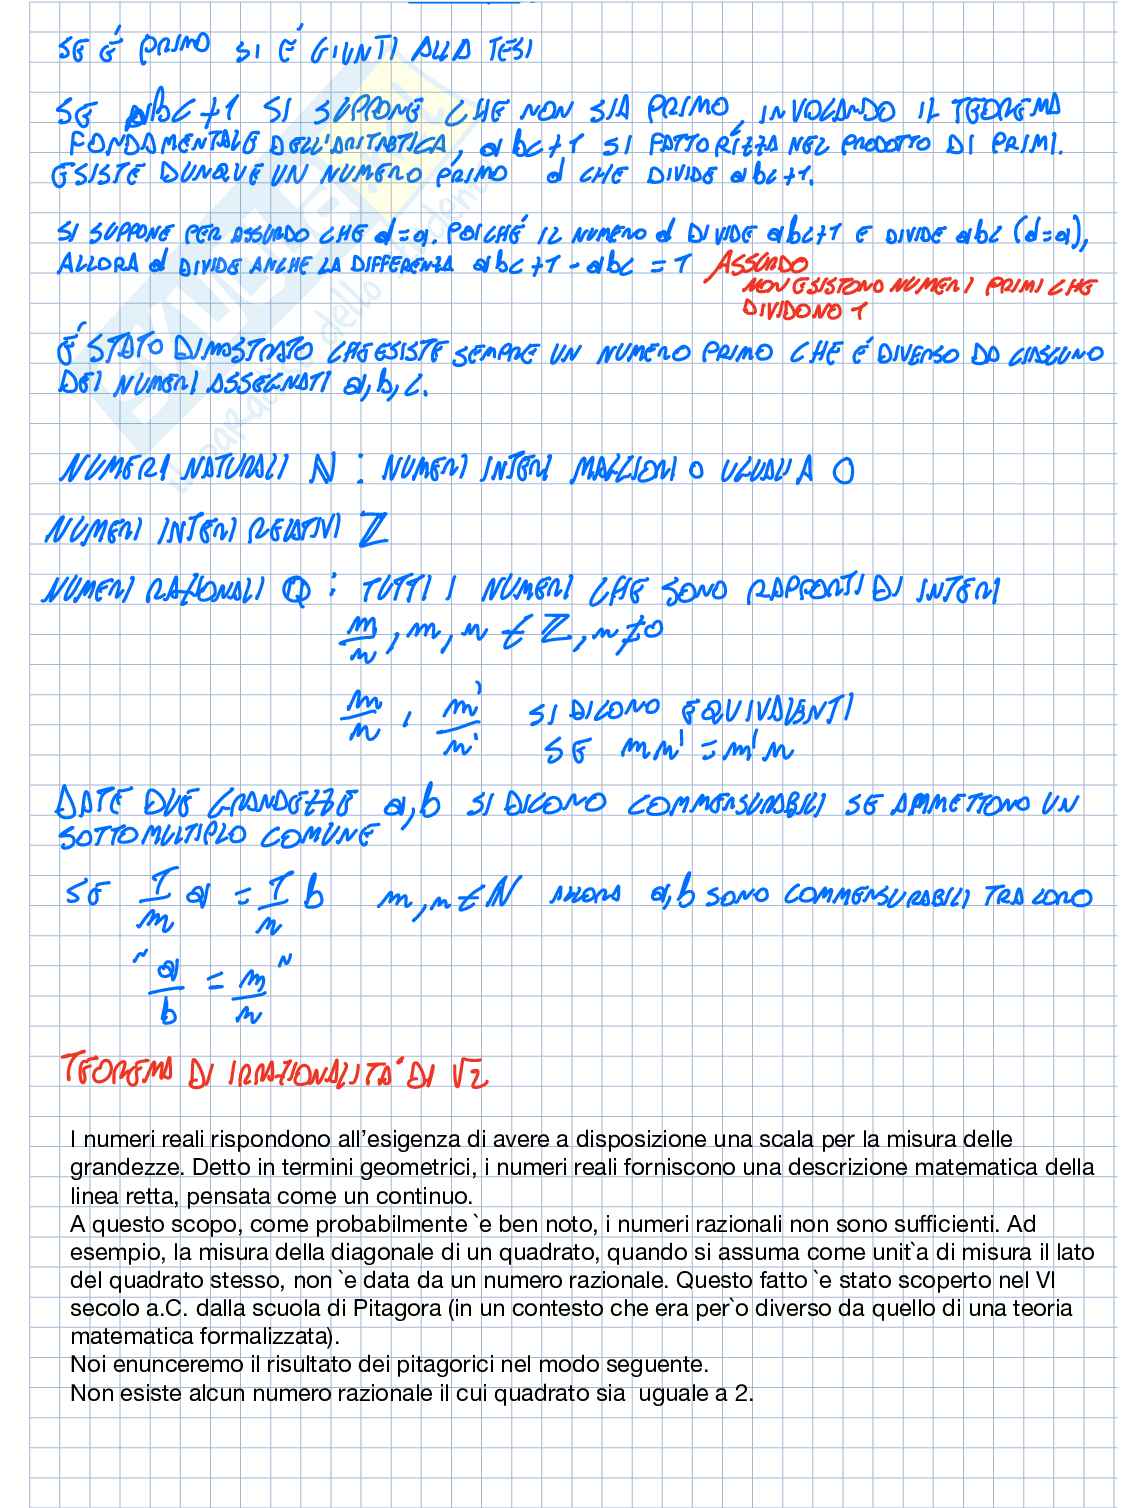 SE È PRIMO SI È GIUNTI ALLA TESI
SE abc+1 SI SUPPONE CHE NON SIA PRIMO, INVOCANDO IL TEOREMA
FONDAMENTALE DELL'ARITMETICA, abc+1 SI FATTORIZZA NEL PRODOTTO DI PRIMI.
ESISTE DUNQUE UN NUMERO PRIMO d CHE DIVIDE abc+1.
SI SUPPONE PER ASSURDO CHE d=a. POICHÉ IL NUMERO d DIVIDE abc+1 E DIVIDE abc (d=a),
ALLORA d DIVIDE ANCHE LA DIFFERENZA abc+1-abc = 1 ASSURDO
NON ESISTONO NUMERI PRIMI CHE
DIVIDONO 1
È STATO DIMOSTRATO CHE ESISTE SEMPRE UN NUMERO PRIMO CHE È DIVERSO DA CIASCUNO
DEI NUMERI ASSEGNATI a, b, c.
NUMERI NATURALI ℕ : NUMERI INTERI MAGGIORI O UGUALI A 0
NUMERI INTERI RELATIVI ℤ
NUMERI RAZIONALI ℚ : TUTTI I NUMERI CHE SONO RAPPORTI DI INTERI
m/n , m, n ∈ ℤ, n≠0
m/n , m'/n' SI DICONO EQUIVALENTI
SE mn' = m'n
DATE DUE GRANDEZZE a, b SI DICONO COMMENSURABILI SE AMMETTONO UN
SOTTOMULTIPLO COMUNE
SE 1/m a = 1/n b m, n ∈ N ALLORA a, b SONO COMMENSURABILI TRA LORO
"a/b = m/n"
TEOREMA DI IRRAZIONALITA' DI √2
I numeri reali rispondono all'esigenza di avere a disposizione una scala per la misura delle
grandezze. Detto in termini geometrici, i numeri reali forniscono una descrizione matematica della
linea retta, pensata come un continuo.
A questo scopo, come probabilmente `e ben noto, i numeri razionali non sono sufficienti. Ad
esempio, la misura della diagonale di un quadrato, quando si assuma come unit`a di misura il lato
del quadrato stesso, non `e data da un numero razionale. Questo fatto `e stato scoperto nel VI
secolo a.C. dalla scuola di Pitagora (in un contesto che era per`o diverso da quello di una teoria
matematica formalizzata).
Noi enunceremo il risultato dei pitagorici nel modo seguente.
Non esiste alcun numero razionale il cui quadrato sia uguale a 2.